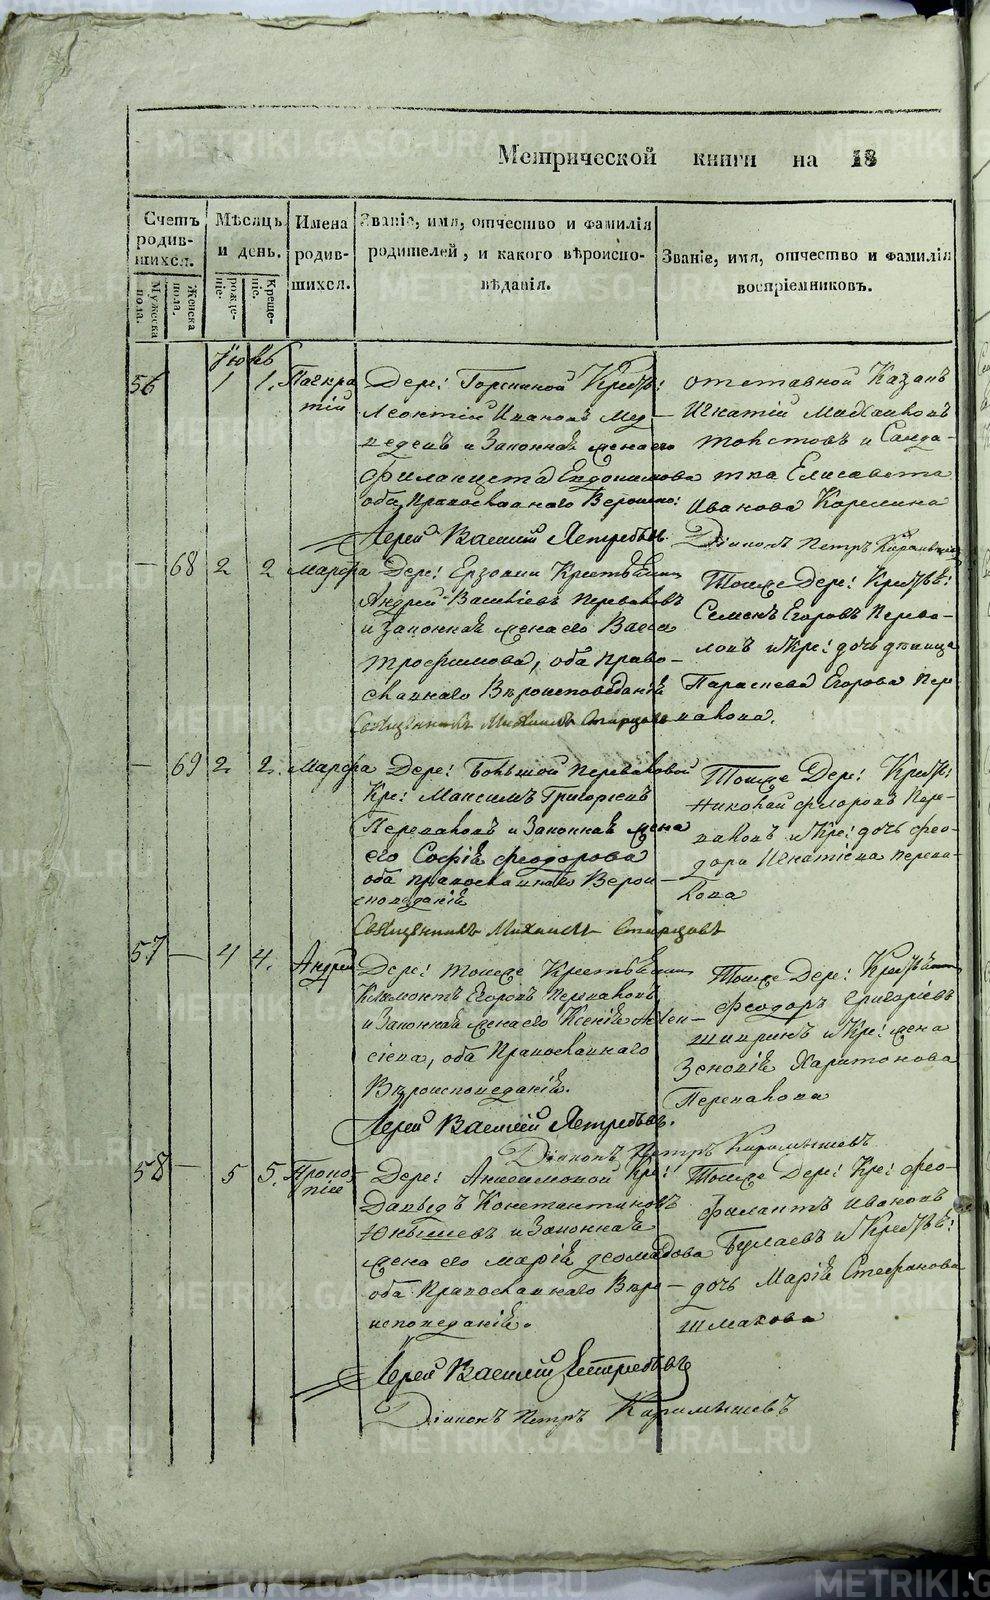 Метрической книги на 18
Счетъ родив-шихся.
Мужеска пола.
Женска пола.
Мѣсяцъ и день.
рожде-ніе.
Креще-ніе.
Имена родив-шихся.
Званіе, имя, отчество и фамилія
родителей, и какого вѣроиспо-
вѣданія.
Званіе, имя, отчество и фамилія
воспріемниковъ.
Іюнь
56 1 1. Панкра
тій
Дере:
Леонтій Ивановъ Мед
ведевъ и Законная жена его
Евдокимова
оба Православнаго Вероиспо:
Іерей Василій Ястребовъ.
отставной Казакъ
Игнатій Михайловъ
Толстовъ и Салда-
тка Елисавета
Иванова Корелина
Діаконъ Петръ
— 68 2 2 Марфа
Дере: Ерзовки
Андрей Васильевъ Переваловъ
и законная жена его Васса
Трофимова, оба право-
славнаго Вѣроисповеданія
Священникъ Михаилъ Старцовъ
Тойже Дере:
Семенъ Егоровъ Перева-
ловъ и Кре: дочь дѣвица
Параскева Егорова Пер
валова.
— 69 2 2. Марфа
Дере: Большой Переваловой
Кре: Максимъ Григорьевъ
Переваловъ и Законная жена
его Софія Феодорова
оба православнаго Верои
споведанія
Священникъ Михаилъ Старцовъ
Тойже Дере:
Николай Флоровъ Пере-
валовъ и Кре: дочь Фео-
дора Игнатіева Перева-
лова
57 — 4 4. Андрей
Дере: тойже
Климонтъ Егоровъ Переваловъ
и Законная жена его Ксенія Алек-
сіева, оба Православнаго
Вѣроисповеданія.
Іерей Василій Ястребовъ.
Діаконъ Петръ Карамышевъ
Тойже Дере:
Феодоръ Григоріевъ
и Кре: жена
Зеновія Харитонова
Перевалова
58 — 5 5. Прокоп
піе
Дере: Анисимовой Кре:
Давыдъ Константиновъ
и Законная
жена его Марія
оба Православнаго Вѣро-
исповеданія.
Іерей Василій Ястребовъ
Діаконъ Петръ Карамышевъ
Тойже Дере: Кре: Фео-
филактъ Ивановъ
Булаевъ и
дочь Марія Стефанова
Шмакова
METRIKI.GASO-URAL.RU